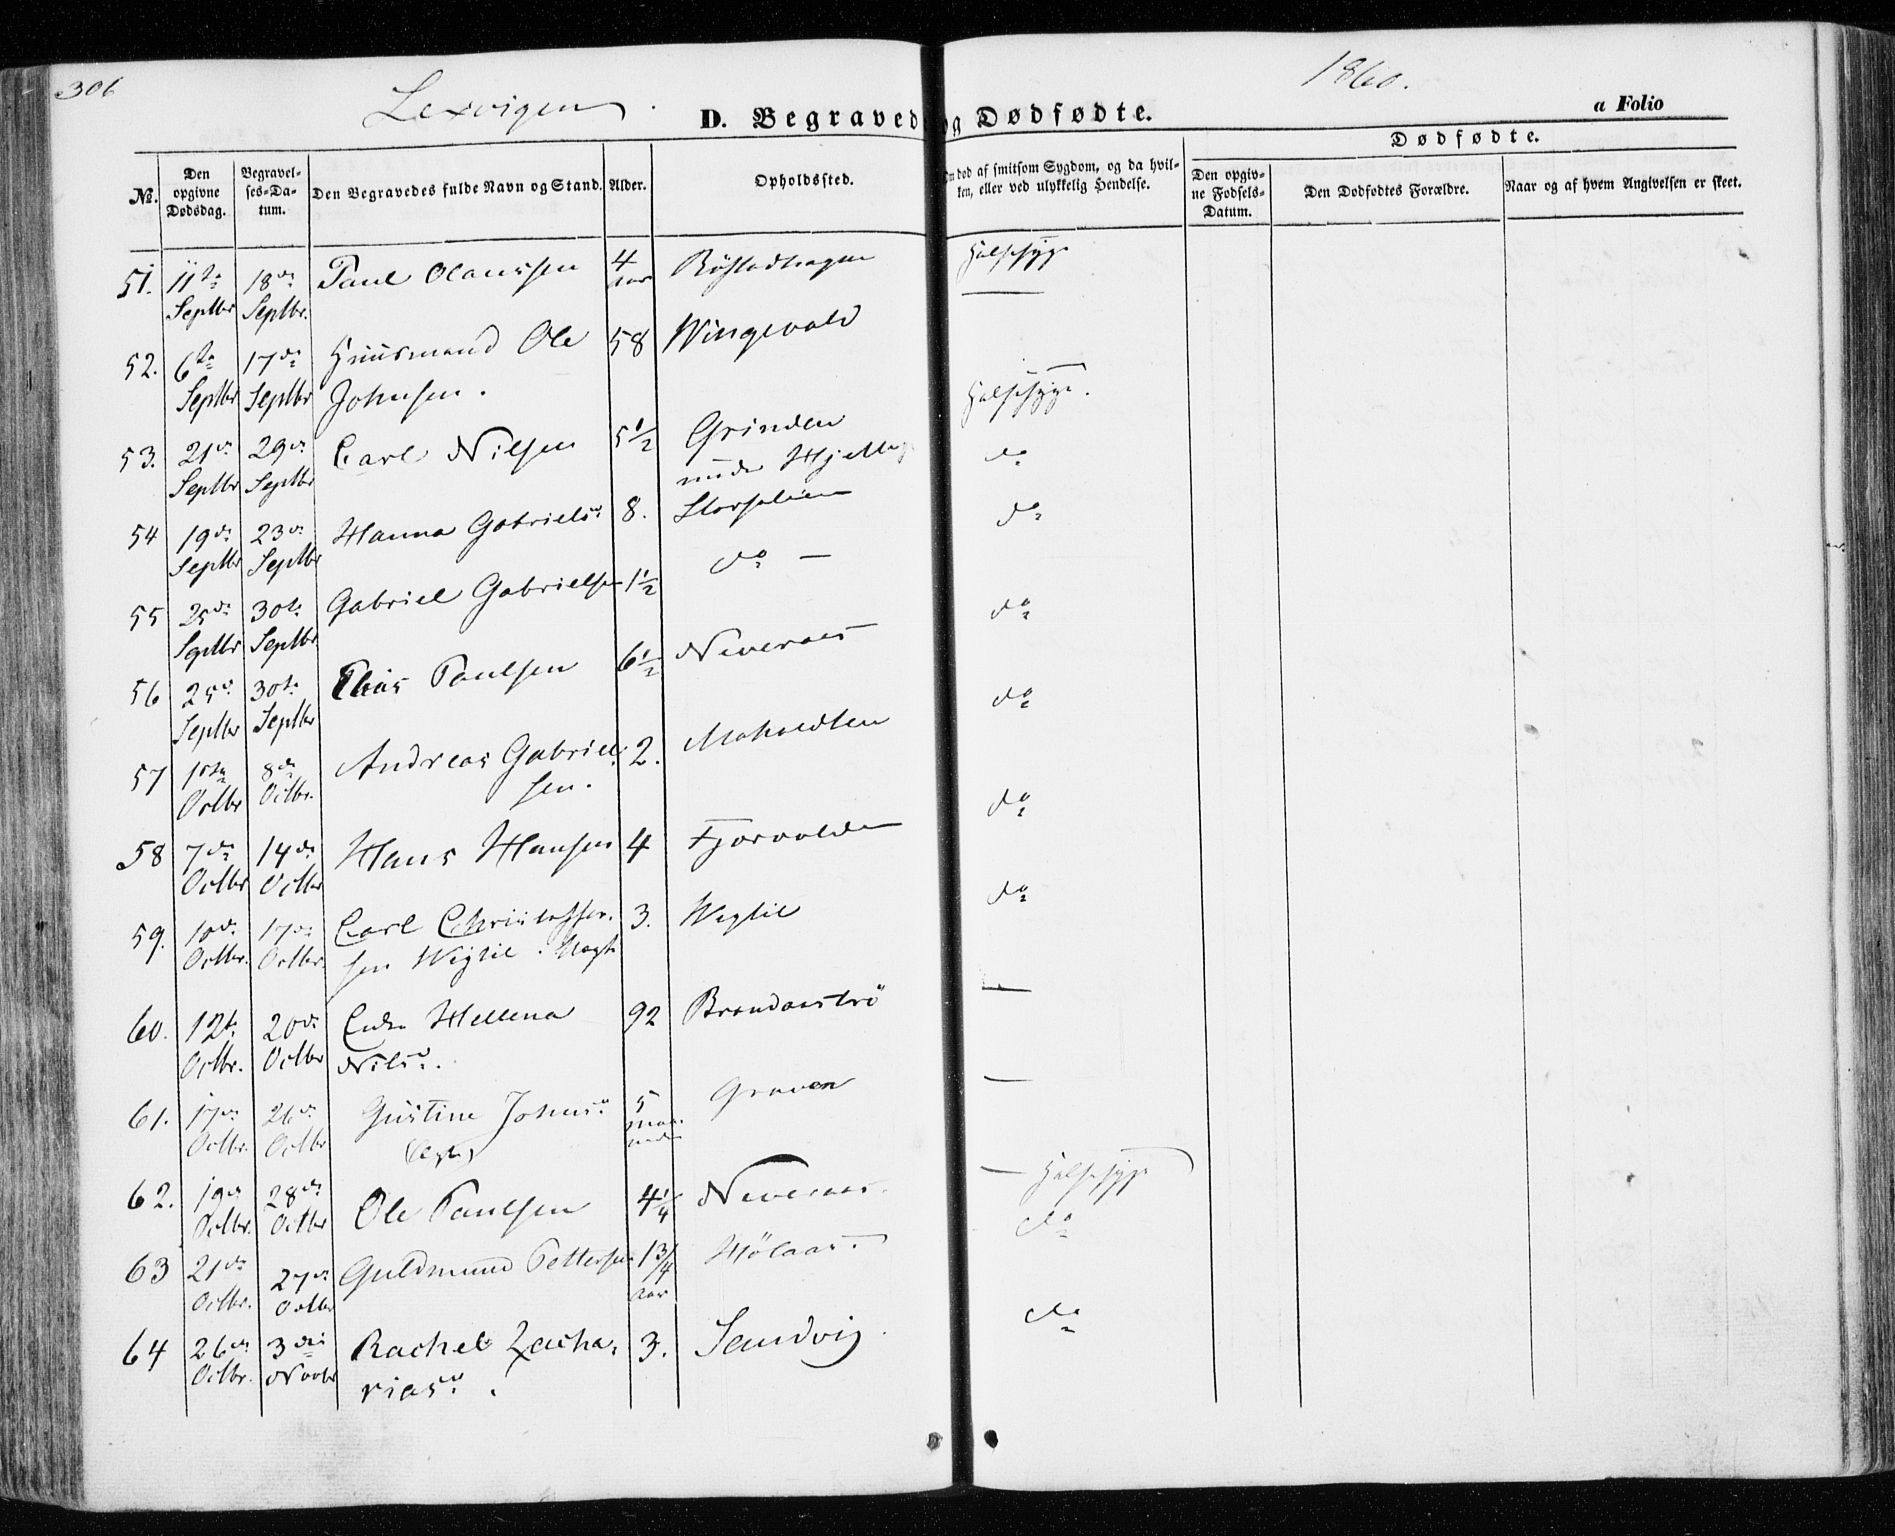 306
Lexvigen.
1860.
D. Begravede og Dødfødte.
a Folio
No.
Den opgivne Dødsdag.
Begravelses-Datum.
Den Begravedes fulde Navn og Stand.
Alder.
Opholdssted.
død af smitsom Sygdom, og da hvilken, eller ved ulykkelig Hendelse.
Dødfødte.
Den opgivne Fødsels-Datum.
Den Dødfødtes Forældre.
Naar og af hvem Angivelsen er skeet.
51. 11te Septbr 18de Septbr. Paul Olaussen 4 aar Halssyge
52. 6te Septbr 17de Septbr Huusmand Ole Johnsen. 58 Wingevold
Halssyge.
53. 21de Septbr 29de Septbr Carl Nilsen 5 1/2 Grinden do
54 19de Septbr 23de Septbr Hanna Gabrielsd 8. do
55 25de Septbr 30te Septbr Gabriel Gabrielsen 1 1/2 do — do
56 25de Septbr 30te Septbr Elias Paulsen 6 1/2 Neveraas do
57 1ste Octbr 8de Octbr. Andreas Gabrielsen. 2. do
58 7de Octbr 14de Octbr Hans Hansen 4 do
59. 10de Octbr. 17de Octbr. Carl Christoffersen 3. Wigtil
60. 12te Octbr. 20de Octbr Enke Hellena Nilsd. 92 Brandaastrø —
61. 17de Octbr. 26de Octbr Gustine Johnsd (Ægte) 5 maaneder Graven —
62. 19de Octbr. 28de Octbr Ole Paulsen 4 1/4 Neveraas — Halssyge
63 21de Octbr. 27de Octbr Guldmund Pettersen 1 3/4 aar Hølaas. do
64 26de Octbr. 3die Novbr Rachel Zachariasd. 3. Sandvig do